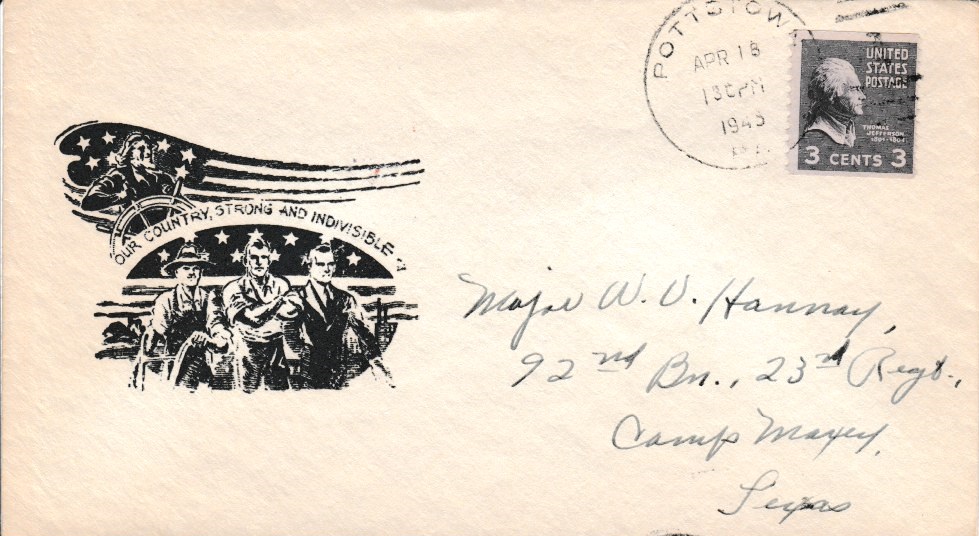 POTTSTOWN
APR 15
130PM
1943
PA.
UNITED
STATES
POSTAGE
THOMAS
JEFFERSON
1801-1804
3 CENTS 3
OUR COUNTRY, STRONG AND INDIVISIBLE
Major W. V. Hannay,
92nd Bn., 23rd Regt.,
Camp Maxey,
Texas